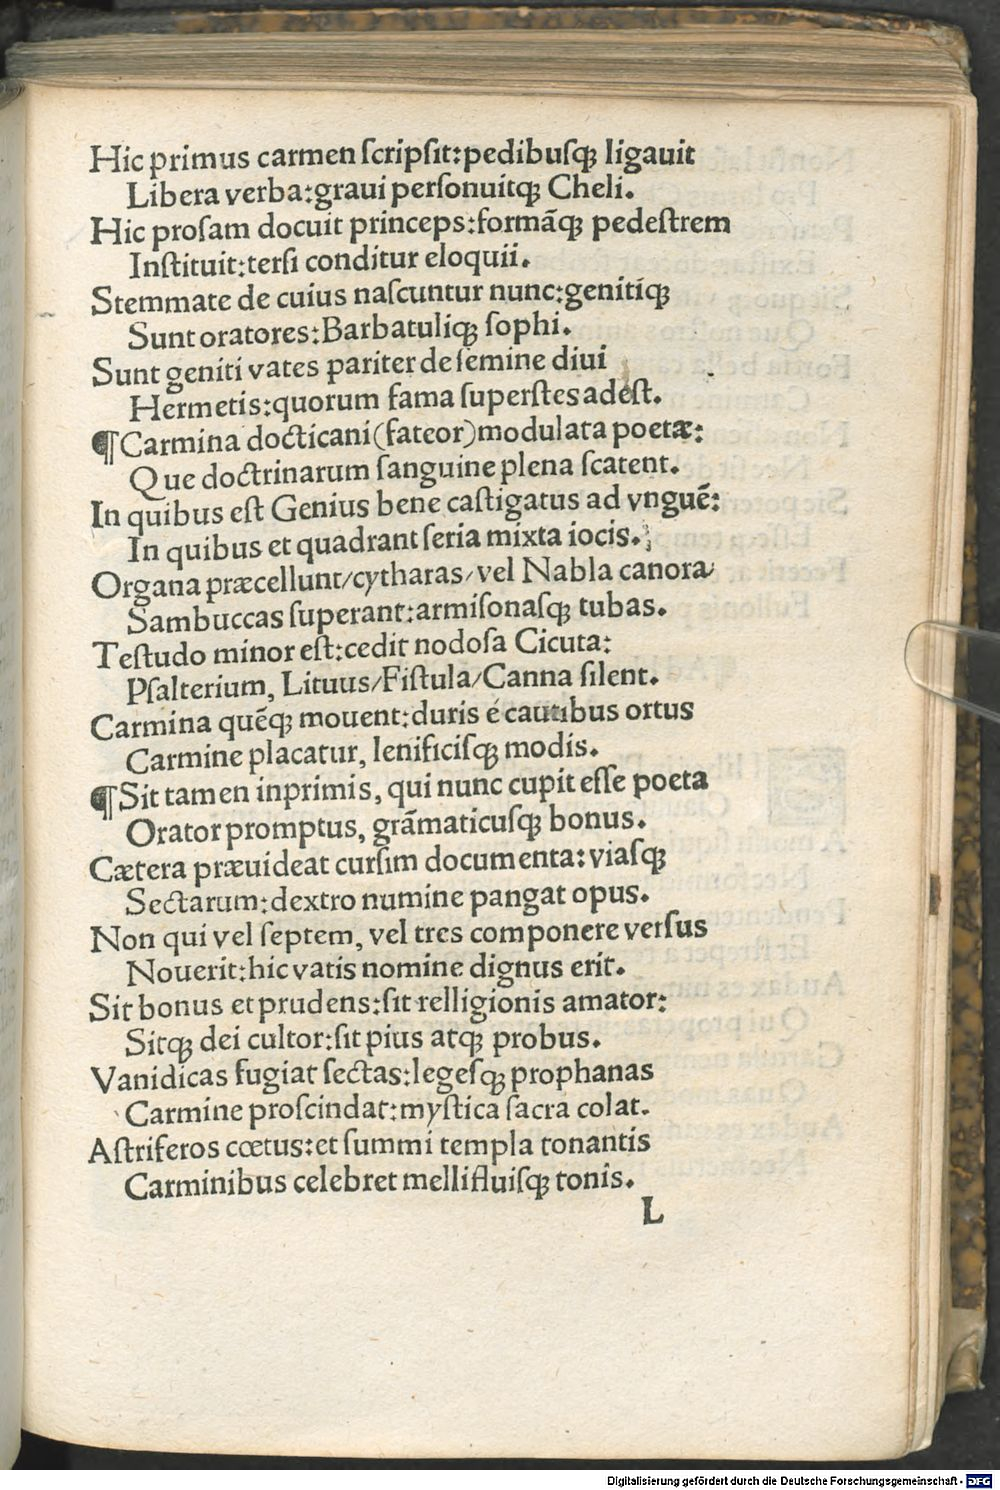 Hic primus carmen ſcripſit:pedibuſqꝫ ligauit
Libera verba:graui perſonuitqꝫ Cheli.
Hic proſam docuit princeps:formãqꝫ pedeſtrem
Inſtituit:terſi conditur eloquii.
Stemmate de cuius naſcuntur nunc:genitiqꝫ
Sunt oratores:Barbatuliqꝫ ſophi.
Sunt geniti vates pariter de ſemine diui
Hermetis:quorum fama ſuperſtes adeſt.
¶Carmina docticani(fateor)modulata poetæ:
Que doctrinarum ſanguine plena ſcatent.
In quibus eſt Genius bene caſtigatus ad vnguẽ:
In quibus et quadrant ſeria mixta iocis.
Organa præcellunt/cytharas/vel Nabla canora/
Sambuccas ſuperant:armiſonaſqꝫ tubas.
Teſtudo minor eſt:cedit nodoſa Cicuta:
Pſalterium, Lituus/Fiſtula/Canna ſilent.
Carmina quẽqꝫ mouent:duris é cautibus ortus
Carmine placatur, lenificiſqꝫ modis.
¶Sit tamen inprimis, qui nunc cupit eſſe poeta
Orator promptus, grãmaticuſqꝫ bonus.
Cætera præuideat curſim documenta:viaſqꝫ
Sectarum:dextro numine pangat opus.
Non qui vel ſeptem, vel tres componere verſus
Nouerit:hic vatis nomine dignus erit.
Sit bonus et prudens:ſit relligionis amator:
Sitqꝫ dei cultor:ſit pius atqꝫ probus.
Vanidicas fugiat ſectas:legeſqꝫ prophanas
Carmine proſcindat:myſtica ſacra colat.
Aſtriferos cœtus:et ſummi templa tonantis
Carminibus celebret mellifluiſqꝫ tonis.
L
Digitalisierung gefördert durch die Deutsche Forschungsgemeinschaft - DFG